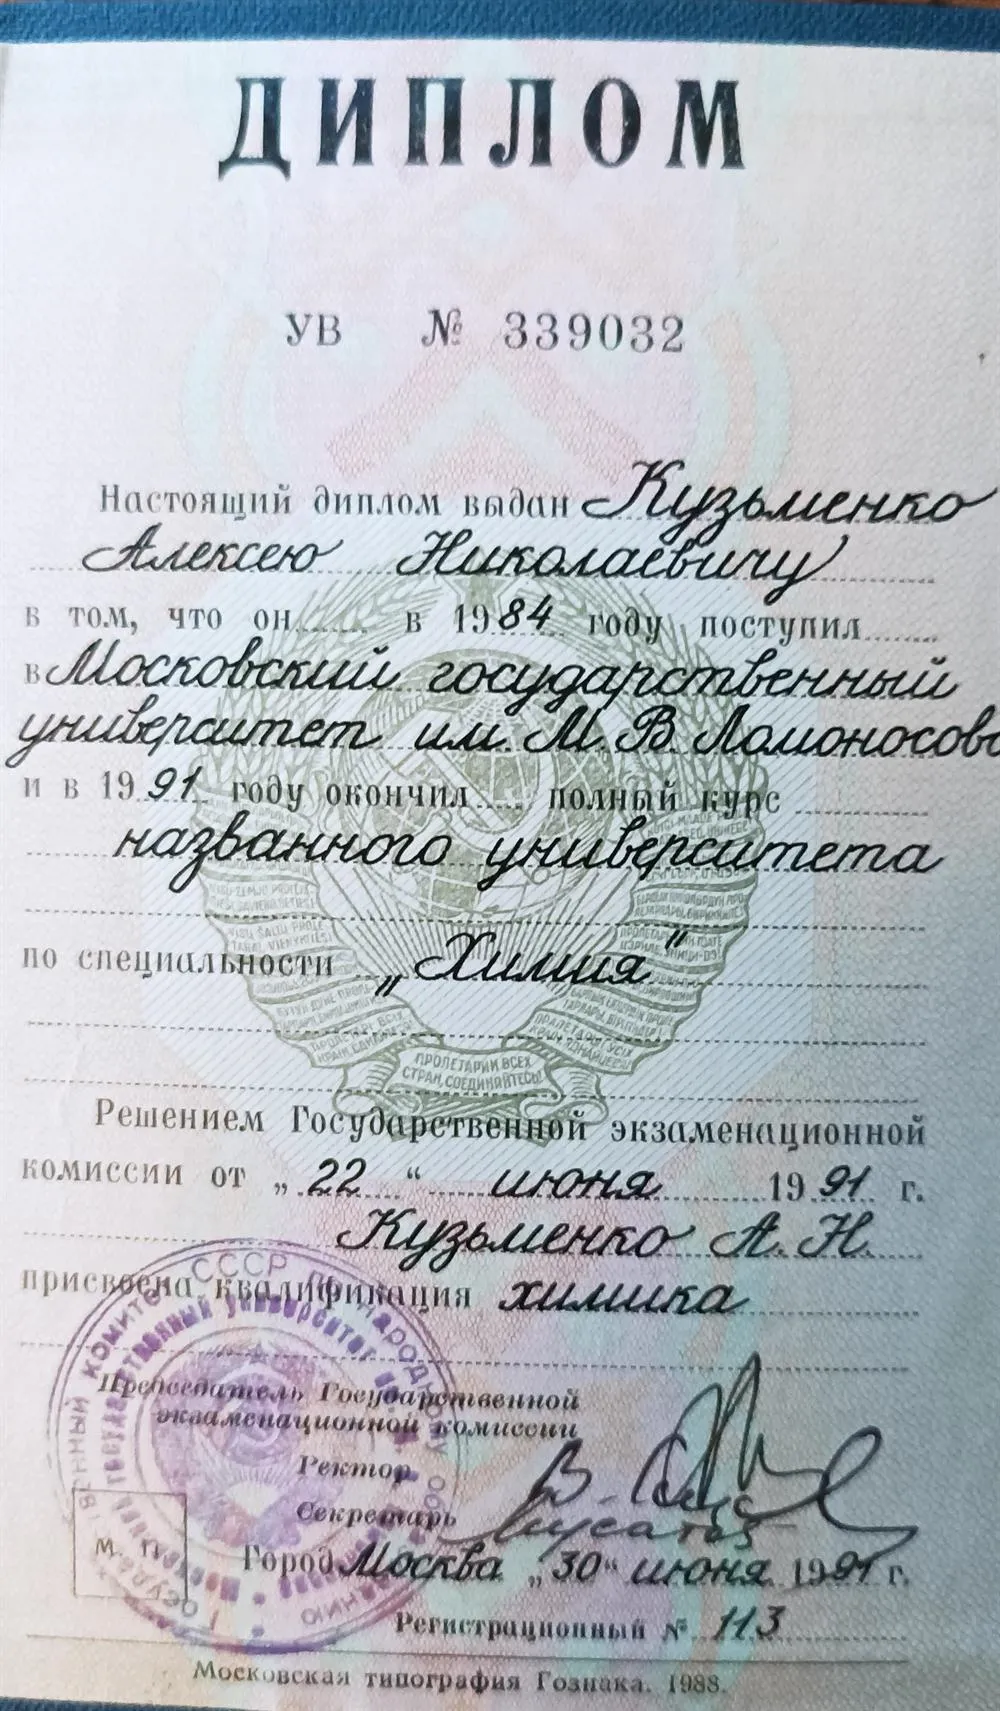 ДИПЛОМ
УВ № 339032
Настоящий диплом выдан Кузьменко
Алексею Николаевичу
в том, что он в 1984 году поступил
в Московский государственный
университет им. М. В. Ломоносова
и в 1991 году окончил полный курс
названного университета
по специальности „Химия"
ПРОЛЕТАРИИ ВСЕХ
СТРАН, СОЕДИНЯЙТЕСЬ!
Решением Государственной экзаменационной
комиссии от „22" июня 1991 г.
Кузьменко А. Н.
присвоена квалификация химика
СССР
Председатель Государственной
экзаменационной комиссии
Ректор
Секретарь
М. П.
Город Москва „30" июня 1991 г.
Регистрационный № 113
Московская типография Гознака. 1988.